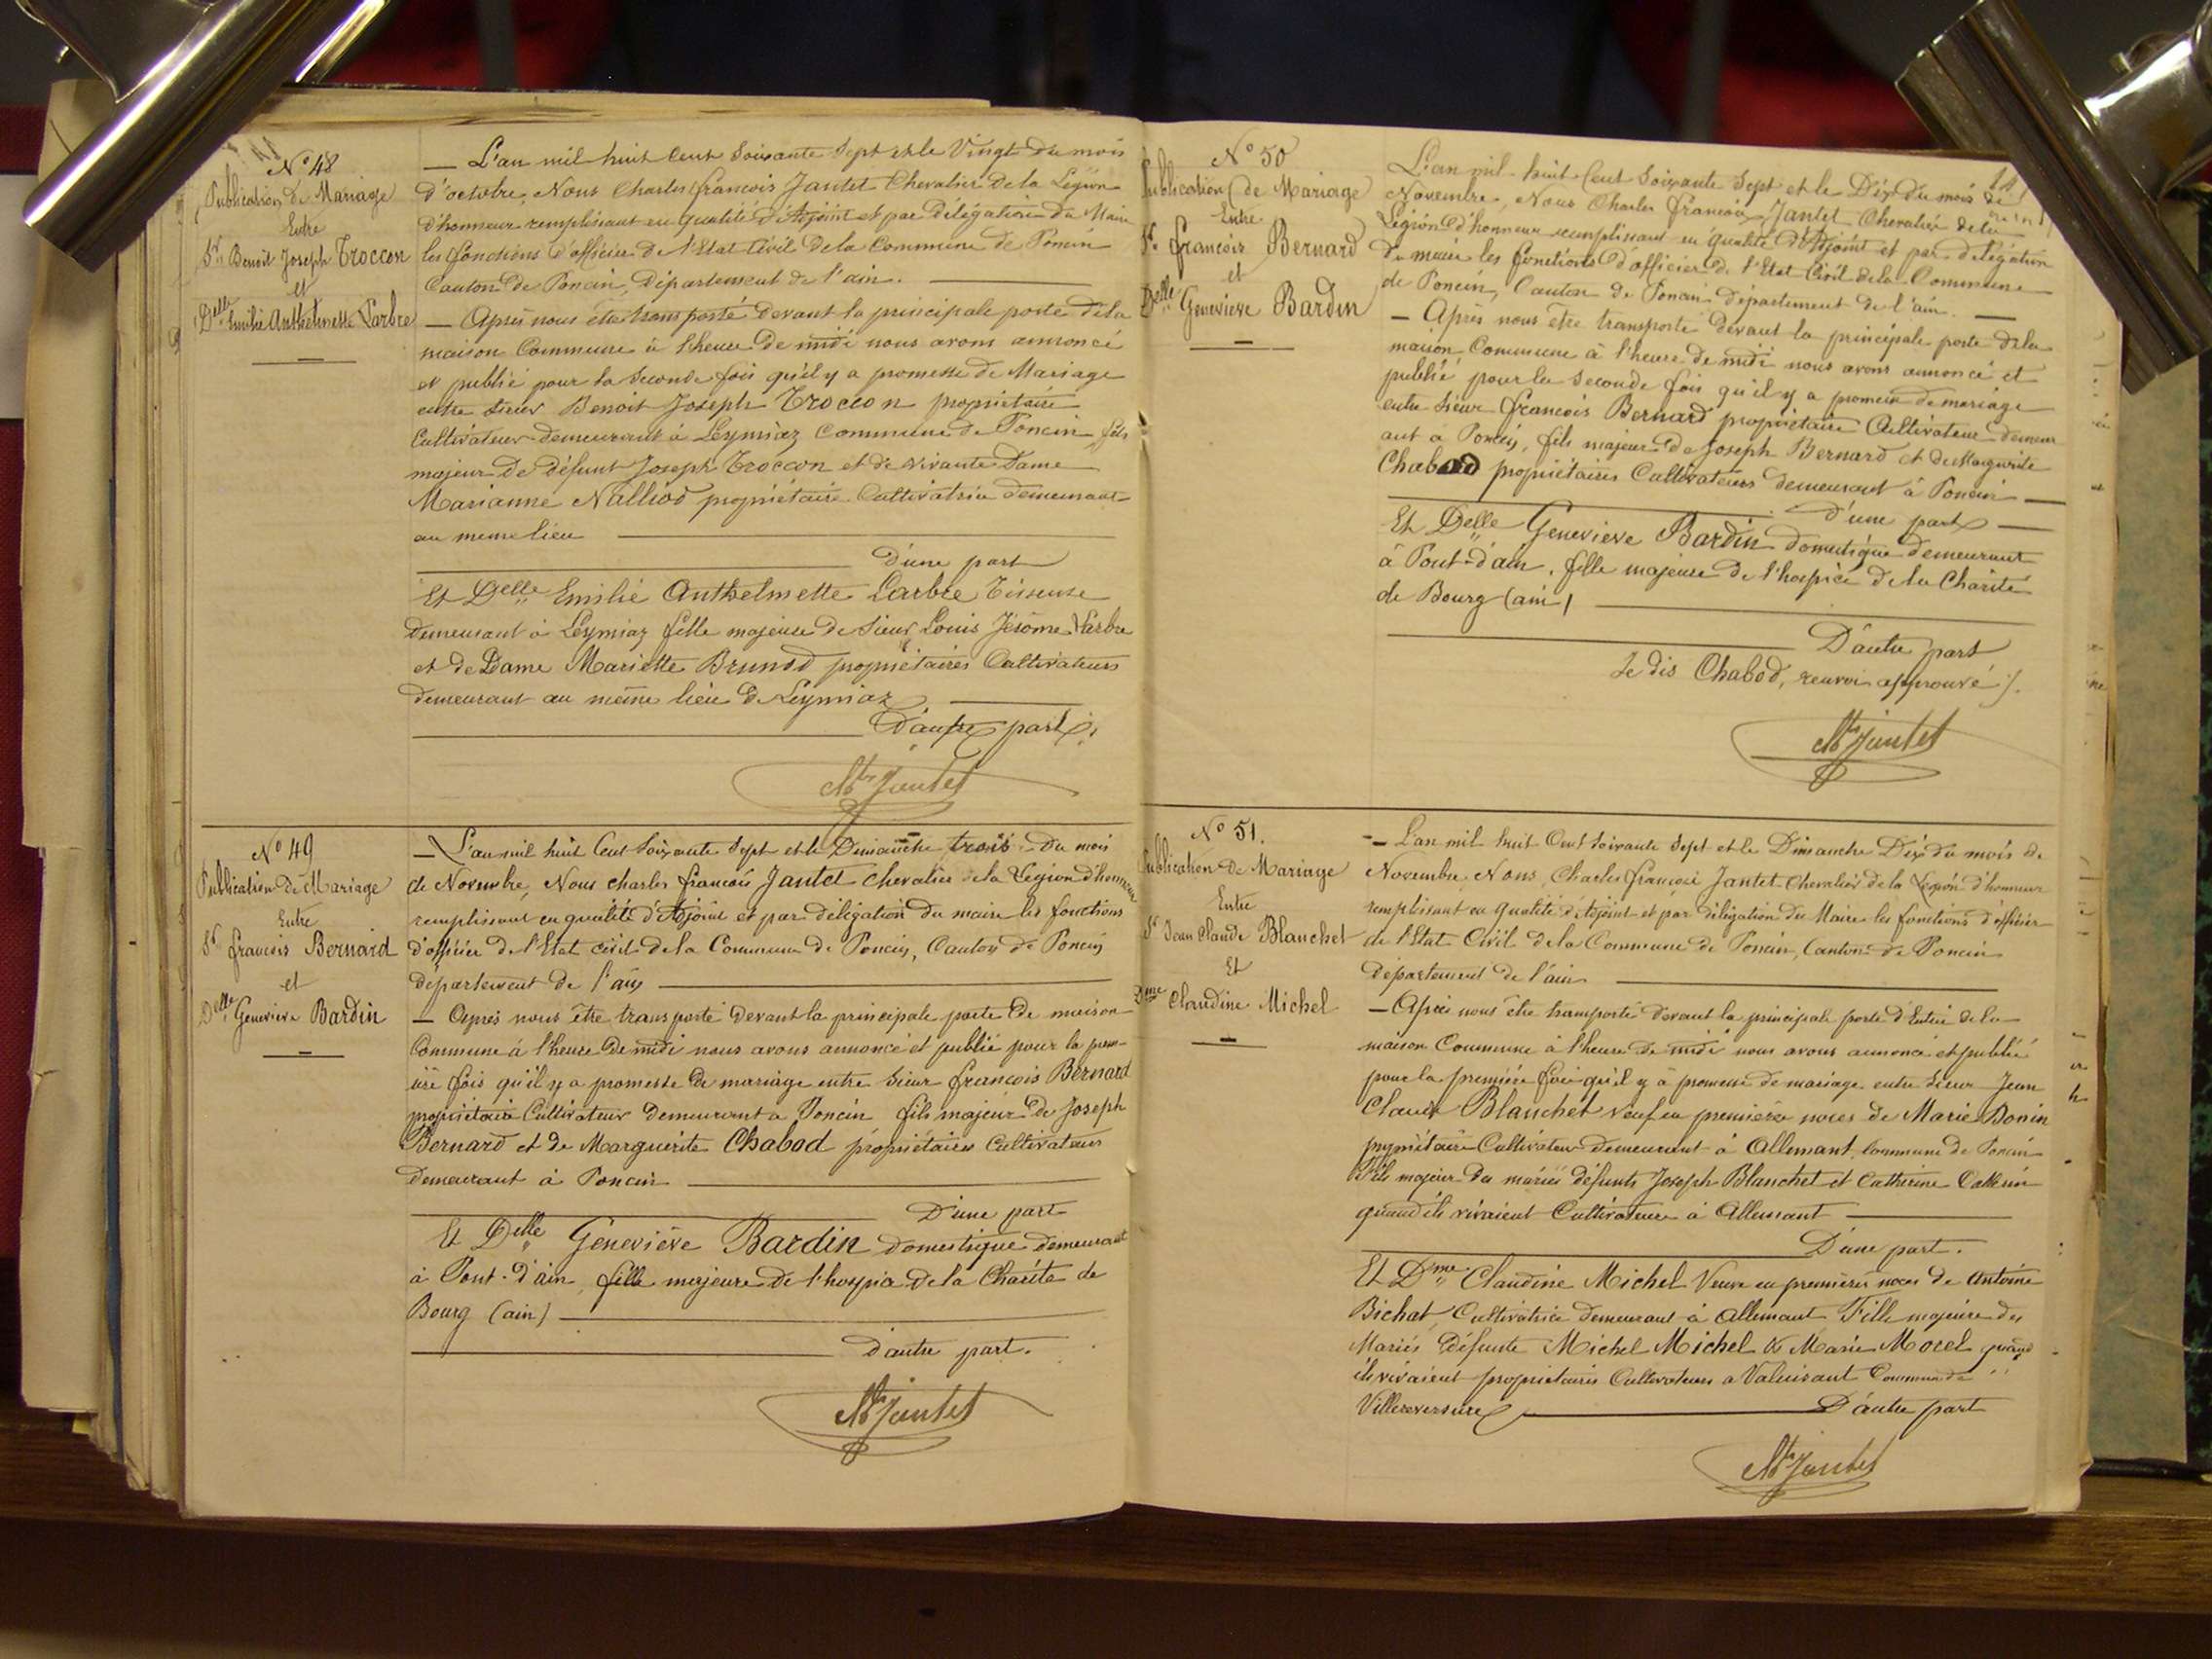 N° 48
Publication de Mariage
Entre
Sr Benoit Joseph Troccon
et
Delle Emilie Anthelmette Larbre
— L'an mil huit Cent Soixante Sept et le Vingt du mois
d'octobre, Nous Charles françois Jantet Chevalier de la Légion
d'honneur remplissant en qualité d'Adjoint et par délégation du Maire
les fonctions d'officier de l'Etat Civil de la Commune de Poncin
Canton de Poncin, Département de l'ain.
— Après nous être transporté devant la principale porte de la
maison Commune à l'heure de midi nous avons annoncé
et publié pour la seconde fois qu'il y a promesse de Mariage
entre sieur Benoit Joseph Troccon propriétaire
Cultivateur demeurant à Leymiaz Commune de Poncin fils
majeur de défunt Joseph Troccon et de vivante Dame
Marianne Nalliod propriétaire Cultivatrice demeurant
au même lieu
D'une part
Et Delle Emilie Anthelmette Larbre Tisseuse
demeurant à Leymiaz fille majeure de Sieur Louis Jérôme Larbre
et de Dame Mariette Brunod propriétaires Cultivateurs
demeurant au même lieu de Leymiaz
D'autre part
Jantet
N° 49
Publication de Mariage
Entre
Sr françois Bernard
et
Delle Geneviève Bardin
— L'an mil huit Cent Soixante Sept et le Dimanche trois du mois
de Novembre, Nous charles françois Jantet chevalier de la Légion d'honneur
remplissant en qualité d'Adjoint et par délégation du maire les fonctions
d'officier de l'Etat civil de la Commune de Poncin, Canton de Poncin
département de l'ain
— Après nous être transporté devant la principale porte de maison
Commune à l'heure de midi nous avons annoncé et publié pour la prem-
ière fois qu'il y a promesse de mariage entre Sieur françois Bernard
propriétaire Cultivateur demeurant à Poncin fils majeur de Joseph
Bernard et de Marguerite Chabod propriétaires Cultivateurs
demeurant à Poncin
D'une part
Et Delle Geneviève Bardin domestique demeurant
à Pont-d'ain, fille majeure de l'hospice de la Charité de
Bourg (ain)
d'autre part.
Jantet
N° 50
Publication de Mariage
Entre
Sr françois Bernard
et
Delle Geneviève Bardin
L'an mil huit Cent Soixante Sept et le Dix du mois de
Novembre, Nous Charles françois Jantet Chevalier de la
Légion d'honneur remplissant en qualité d'Adjoint et par délégation
du maire les fonctions d'officier de l'Etat Civil de la Commune
de Poncin, Canton de Poncin département de l'ain. —
— Après nous être transporté devant la principale porte de la
maison Commune à l'heure de midi nous avons annoncé et
publié pour la seconde fois qu'il y a promesse de mariage
entre Sieur françois Bernard propriétaire Cultivateur demeur
ant à Poncin, fils majeur de Joseph Bernard et de Marguerite
propriétaires Cultivateurs demeurant à Poncin —
d'une part —
Et Delle Geneviève Bardin domestique demeurant
à Pont-d'ain, fille majeure de l'hospice de la Charité
de Bourg (ain)
D'autre part
Je dis Chabod, renvoi approuvé
Jantet
N° 51.
Publication de Mariage
Entre
Sr Jean Claude Blanchet
Et
Dme Claudine Michel
— L'an mil huit Cent Soixante Sept et le Dimanche Dix du mois de
Novembre Nous, Charles françois Jantet Chevalier de la Légion d'honneur
remplissant en qualité d'Adjoint et par délégation du Maire les fonctions d'officier
de l'Etat Civil de la Commune de Poncin, Canton de Poncin
département de l'ain
— Après nous être transporté devant la principale porte d'Entrée de la
maison Commune à l'heure de midi nous avons annoncé et publié
pour la première fois qu'il y a promesse de mariage entre Sieur Jean
Claude Blanchet veuf en premières noces de Marie Bonin
propriétaire Cultivateur demeurant à Allement, Commune de Poncin
Fils majeur des mariés défunts Joseph Blanchet et Catherine
quand ils vivaient Cultivateurs à Allemant
D'une part.
Et Dme Claudine Michel Veuve en premières noces de Antoine
Bichat, Cultivatrice demeurant à Allemant Fille majeure des
Mariés Défunts Michel Michel & Marie Morel quand
ils vivaient propriétaires Cultivateurs a Commune de
Villereversure
D'autre part
Jantet